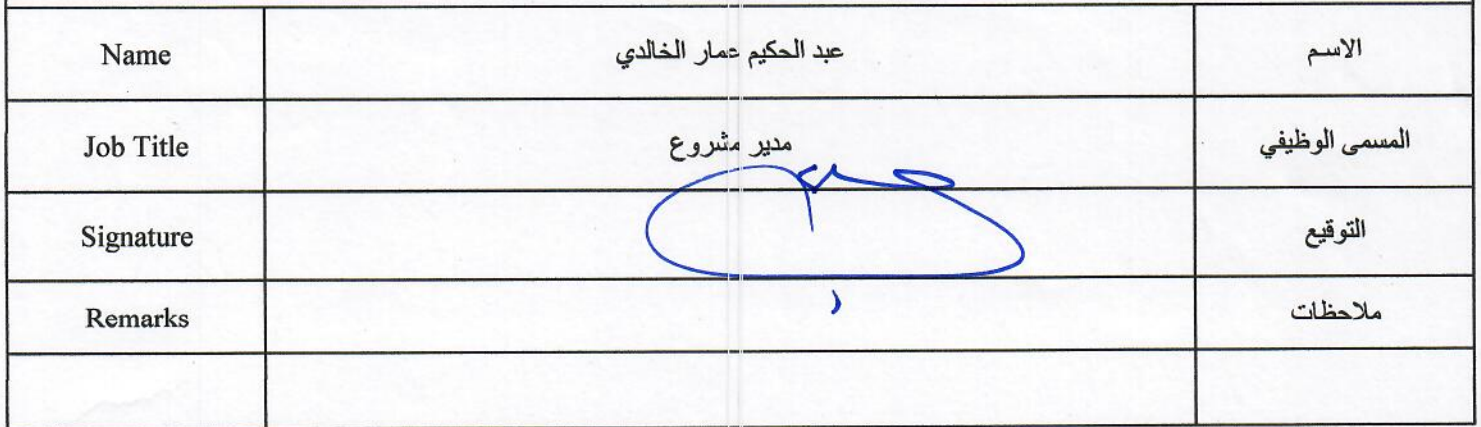 Name عبد الحكيم عمار الخالدي الاسم
Job Title مدير مشروع المسمى الوظيفي
Signature التوقيع
Remarks ملاحظات